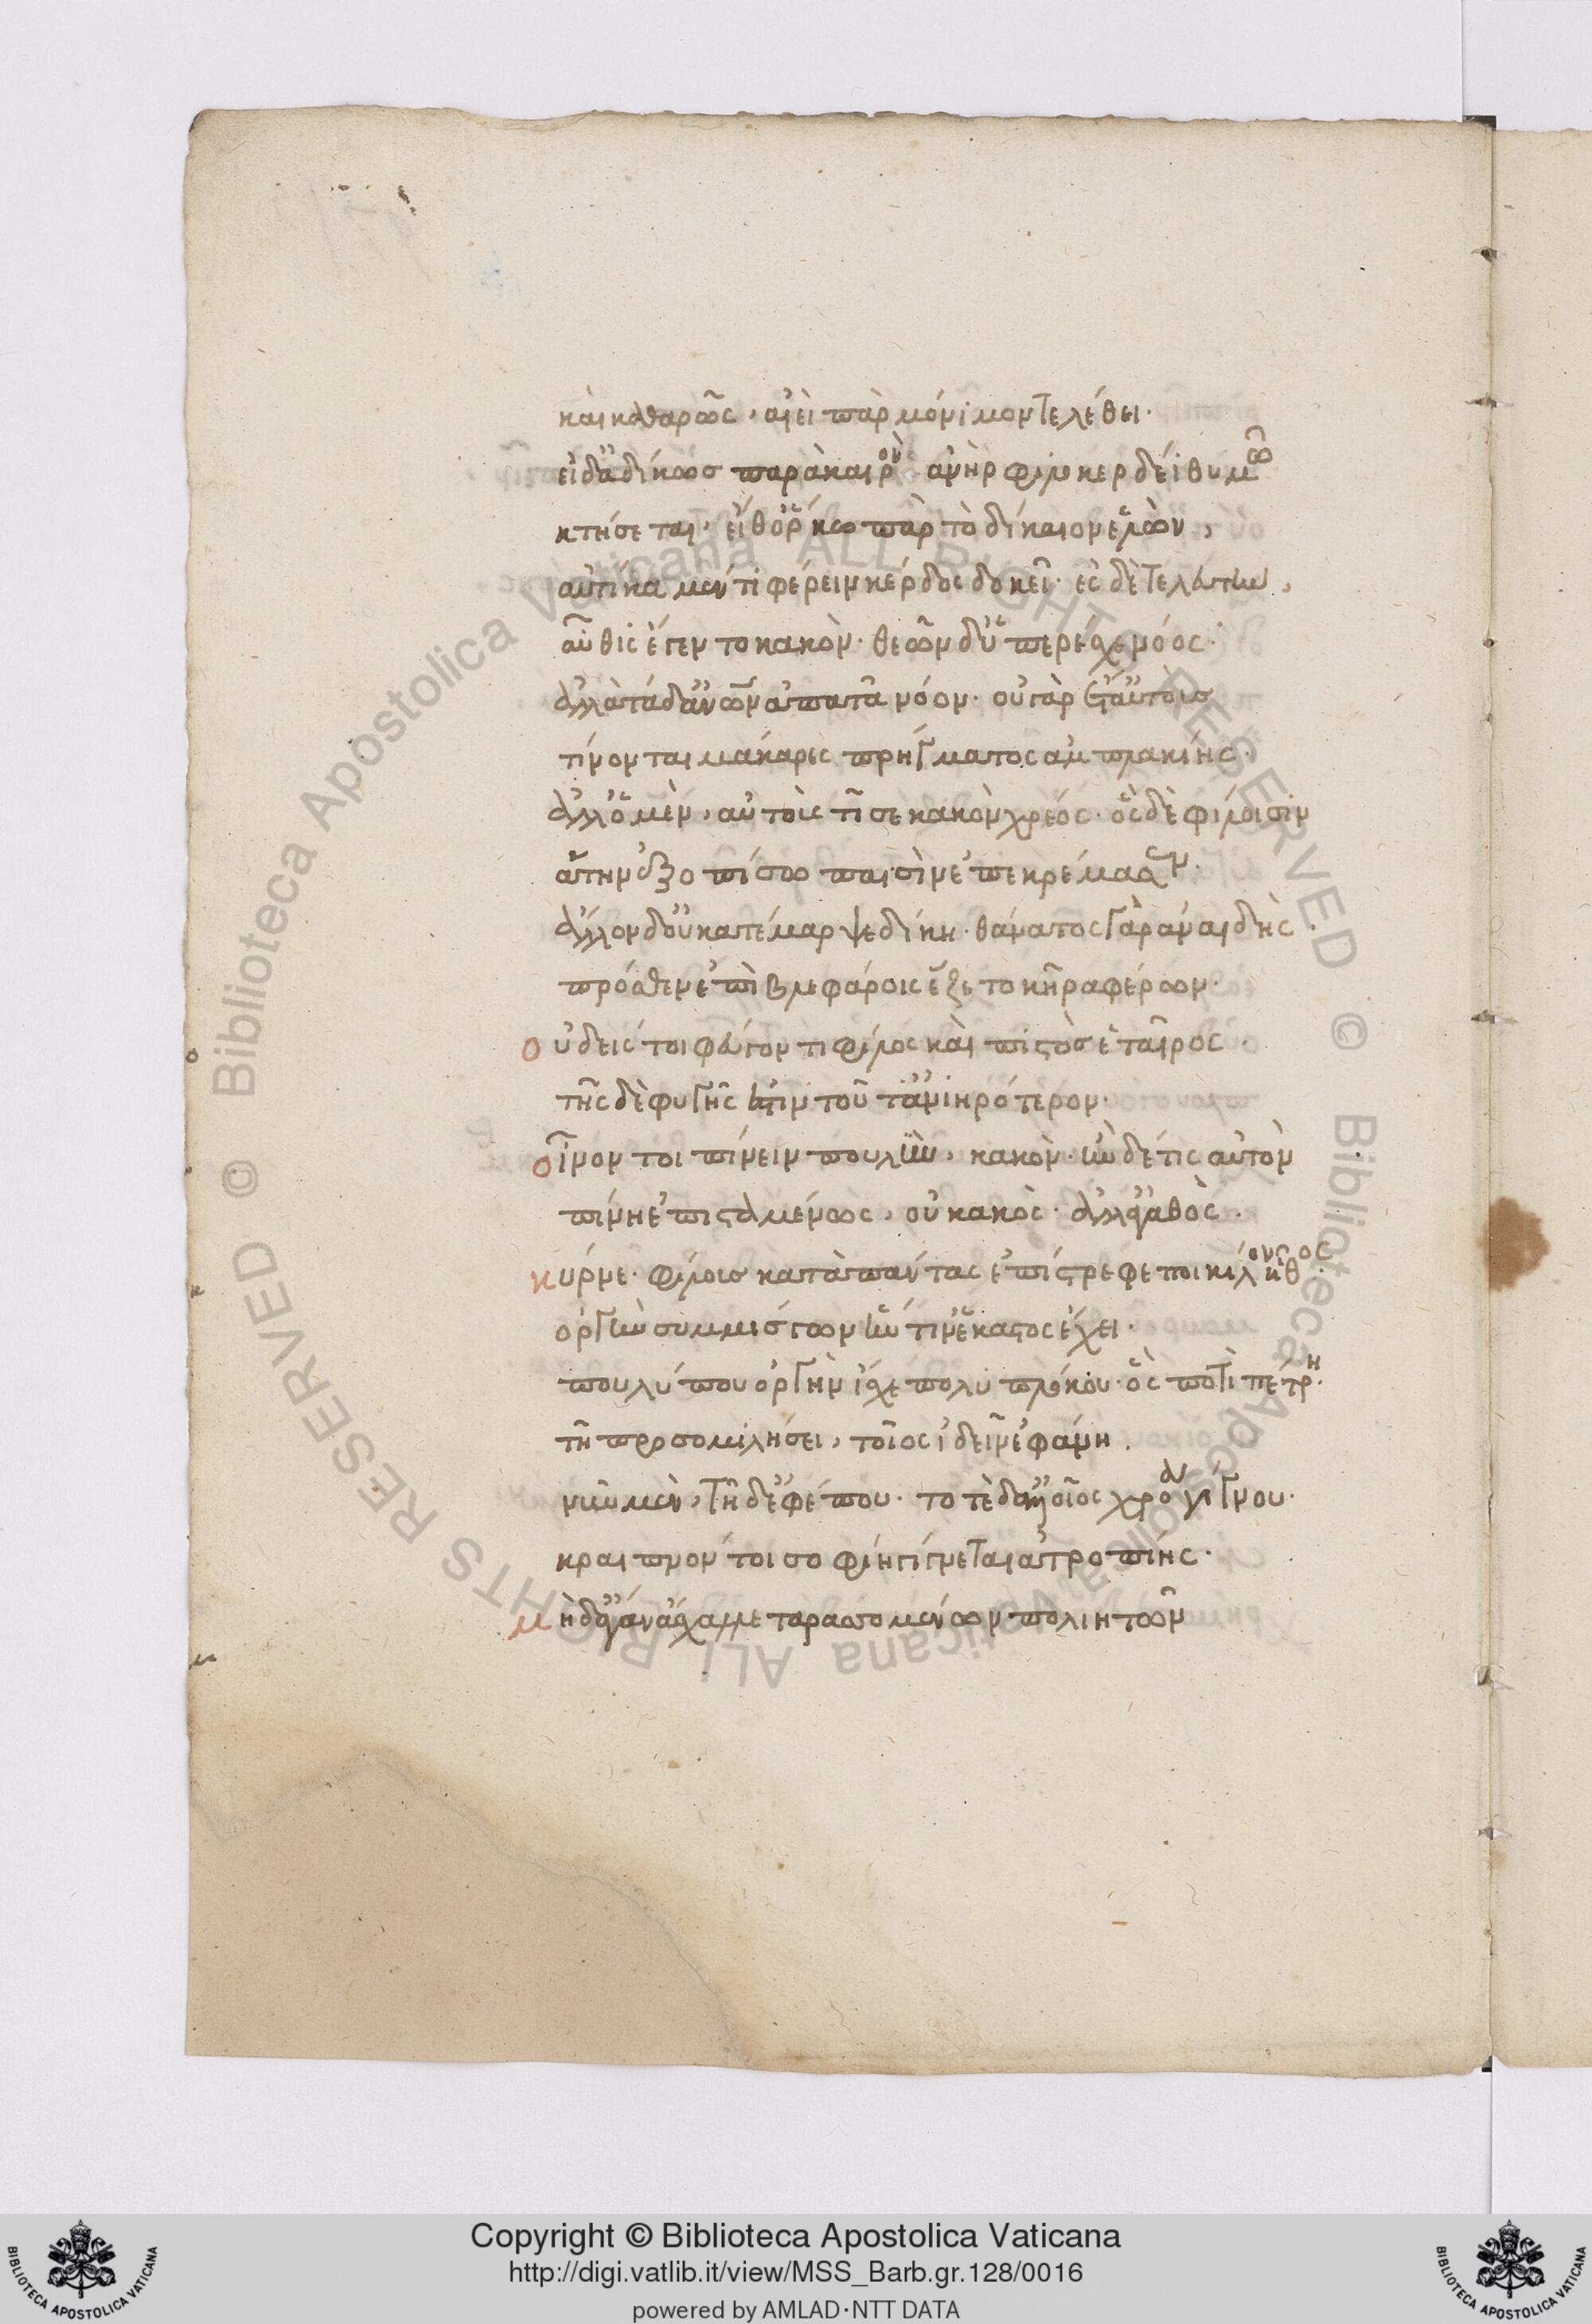 καὶ καθαρῶς, αἰεὶ παρμόνιμον τελέθει·
εἰ δ' ἀδίκως παρὰ καιρὸν ἀνὴρ φιλοκερδέϊ θυμῶ
κτήσεται, εἴθ' ὅρκω πὰρ τὸ δίκαιον ἑλὼν,
αὐτίκα μέν τι φέρειν κέρδος δοκεῖ· ἐς δὲ τελευτὴν,
αὖθις ἔγεντο κακὸν· θεῶν δ' ὑπερέσχε νόος·
ἀλλὰ τάδ' ἀνθρώπων ἀπατᾶ νόον· οὐ γὰρ ἐπ' αὐτοῖς
τίνονται μάκαρες πρήγματος ἀμπλακίης·
ἀλλ' ὃ μὲν, αὐτὸς τῖσε κακὸν χρέος· ὃς δὲ φίλοισιν
ἄτην ἐξοπίσω παισὶν ἐπεκρέμασεν·
ἄλλον δ' οὐ κατέμαρψε δίκη· θάνατος γὰρ ἀναιδὴς
πρόσθεν ἐπὶ βλεφάροις ἕζετο κῆρα φέρων·
οὐδείς τοι φεύγοντι φίλος καὶ πιστὸς ἑταῖρος·
τῆς δὲ φυγῆς ἐστὶν τοῦτ' ἀνιηρότερον·
οἶνόν τοι πίνειν πουλὺν, κακὸν· ἢν δέ τις αὐτὸν
πίνη ἐπισταμένως, οὐ κακὸς· ἀλλ' ἀγαθὸς·
κύρνε· φίλους κατὰ πάντας ἐπίστρεφε ποικίλον ἦθος·
ὀργὴν συμμίσγων ἥν τιν' ἕκαστος ἔχει·
πουλύπου ὀργὴν ἴσχε πολυπλόκου· ὃς ποτὶ πέτρη·
τῆ προσομιλήσει, τοῖος ἰδεῖν ἐφάνη.
νῦν μὲν, τῆδ' ἐφέπου· τοτὲ δ' ἀλλοῖος χρόα γίγνου·
κραιπνόν τοι σοφίη γίγνεται ἀτροπίης·
μηδὲν ἄγαν ἄσχαλλε ταρασσομένων πολιητῶν
Copyright © Biblioteca Apostolica Vaticana
http://digi.vatlib.it/view/MSS_Barb.gr.128/0016
powered by AMLAD·NTT DATA